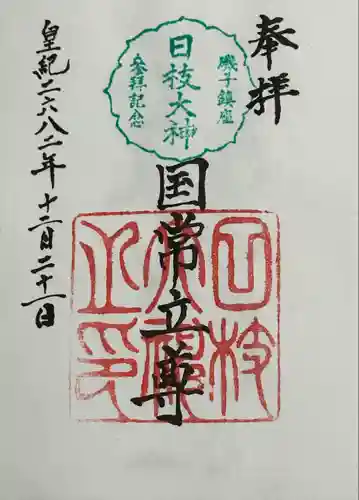 奉拝
磯子鎮座
日枝大神
参拝記念
国常立尊
皇紀二六八二年十二月二十一日